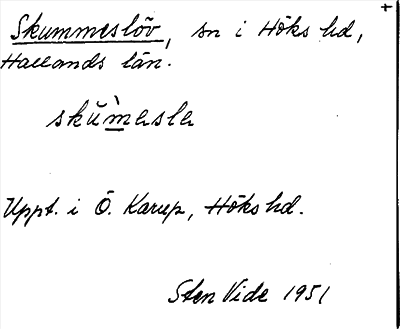 Skummeslöv, sn i Höks hd,
Hallands län.
skŭ̀mesla
Uppt. i Ö. Karup, Höks hd.
Sten Vide 1951